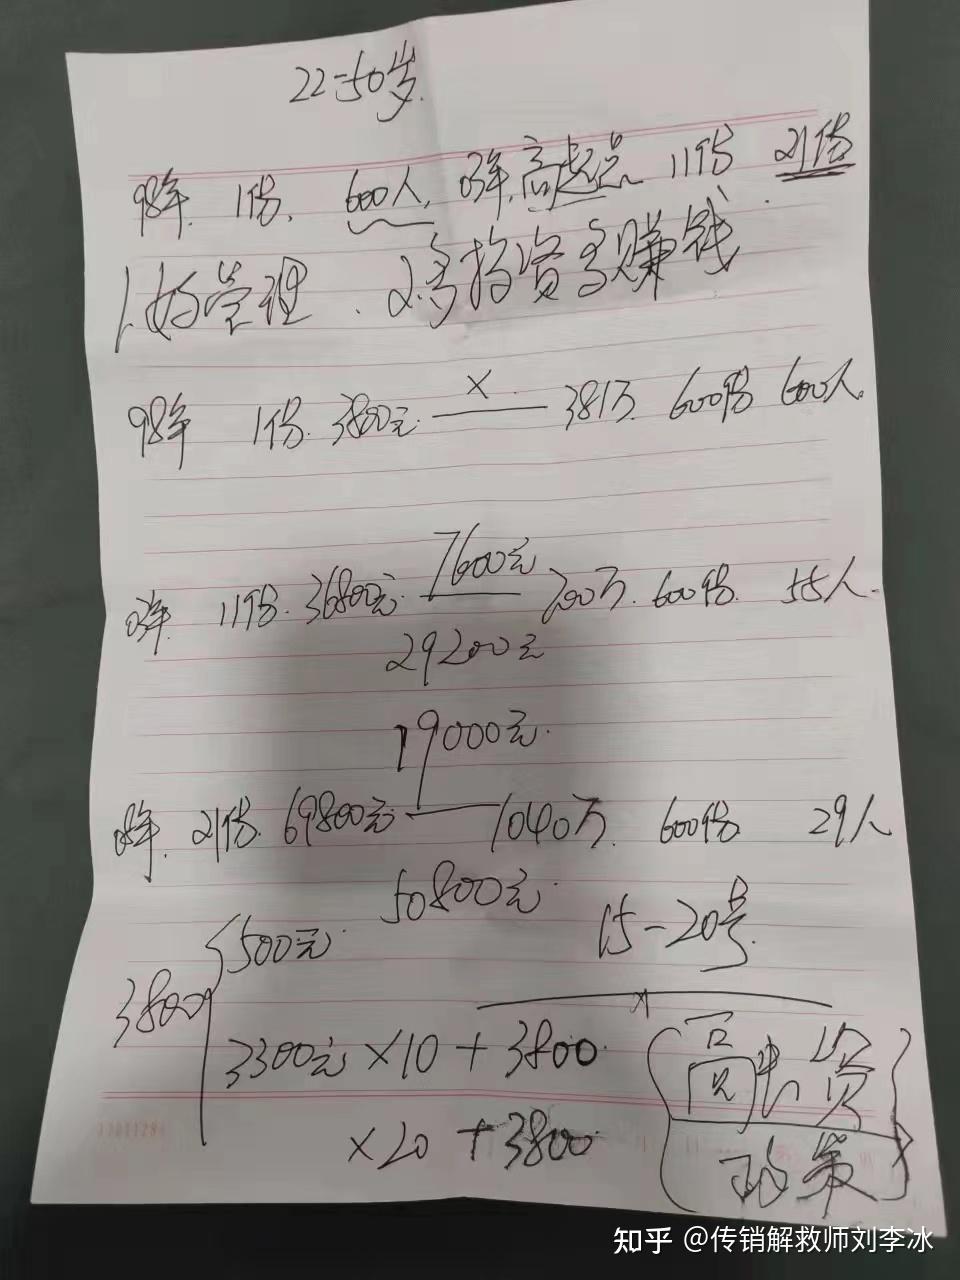 22-50岁.
98年. 1份. 600人. 03年.高起点. 11份. 21份
1、好管理. 2多投资多赚钱
98年 1份. 3800元. × 381万. 600份 600人.
7600元
03年. 11份. 36800元. 200万. 600份. 55人.
29200元
19000元.
08年. 21份. 69800元. 1040万. 600份. 29人
50800元.
500元. 15-20号.
3800 ×
3300元×10+3800.
×20+3800.
资
政策
知乎 @传销解救师刘李冰